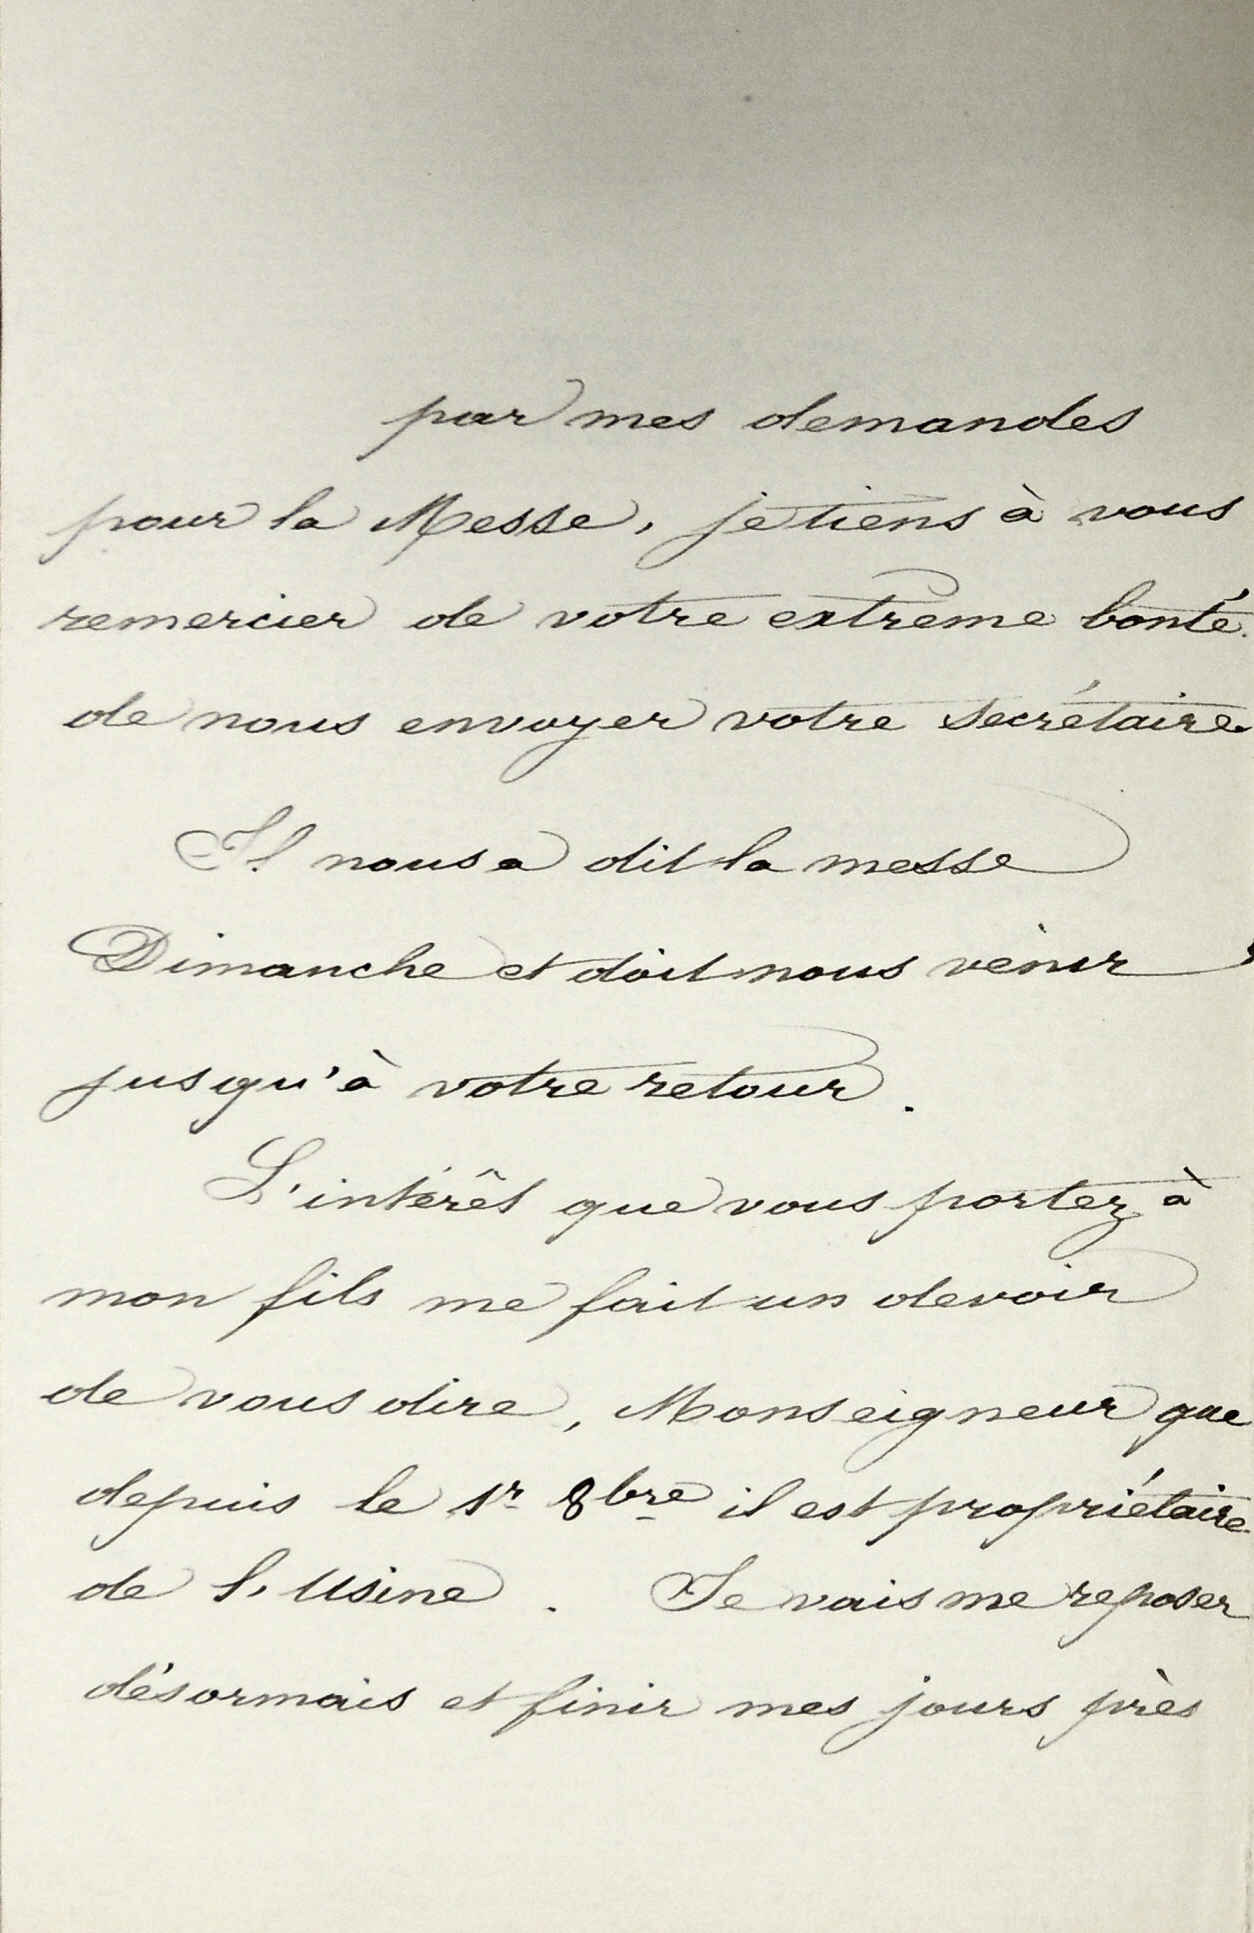 par mes demandes
pour la Messe, je tiens à vous
remercier de votre extreme bonté
de nous envoyer votre secrétaire.
Il nous a dit la messe
Dimanche et doit nous venir
jusqu'à votre retour.
L'intérêt que vous portez à
mon fils me fait un devoir
de vous dire, Monseigneur que
depuis le 1r 8bre il est propriétaire
de l'Usine. Je vais me reposer
désormais et finir mes jours près